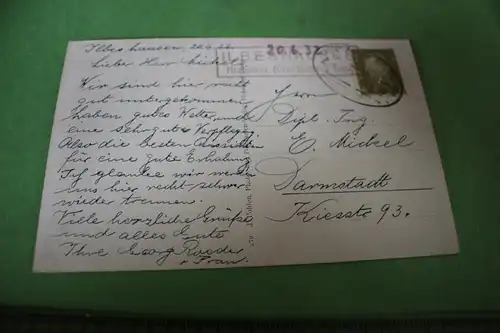 Ilbeshausen, 20.6.32.
Lieber Herr Mickel!
Wir sind hier recht
gut untergekommen
haben gutes Wetter und
eine sehr gute Verpflegung.
Also die besten Aussichten
für eine gute Erholung
Ich glaube wir werden
uns hier recht schwer
wieder trennen.
Viele herzliche Grüße
und alles Gute
Ihre Georg Roeder
u. Frau.
20.6.32
ILBESHAUSEN
Herrn
Dipl. Ing.
E. Mickel
Darmstadt
Kiesstr 93.